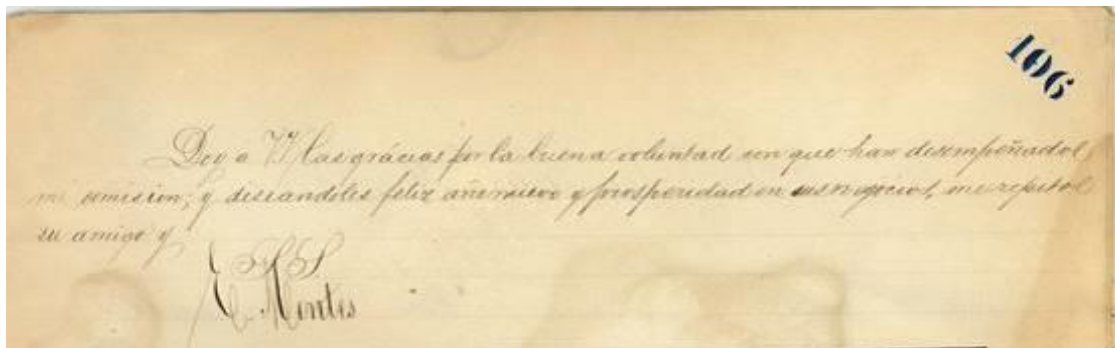 106
Doy a VV las grácias por la buena voluntad con que han desempeñado
mi comision; y deseandoles feliz año nuevo y prosperidad en sus negocios, me repito
su amigo y
S S
E. Montes